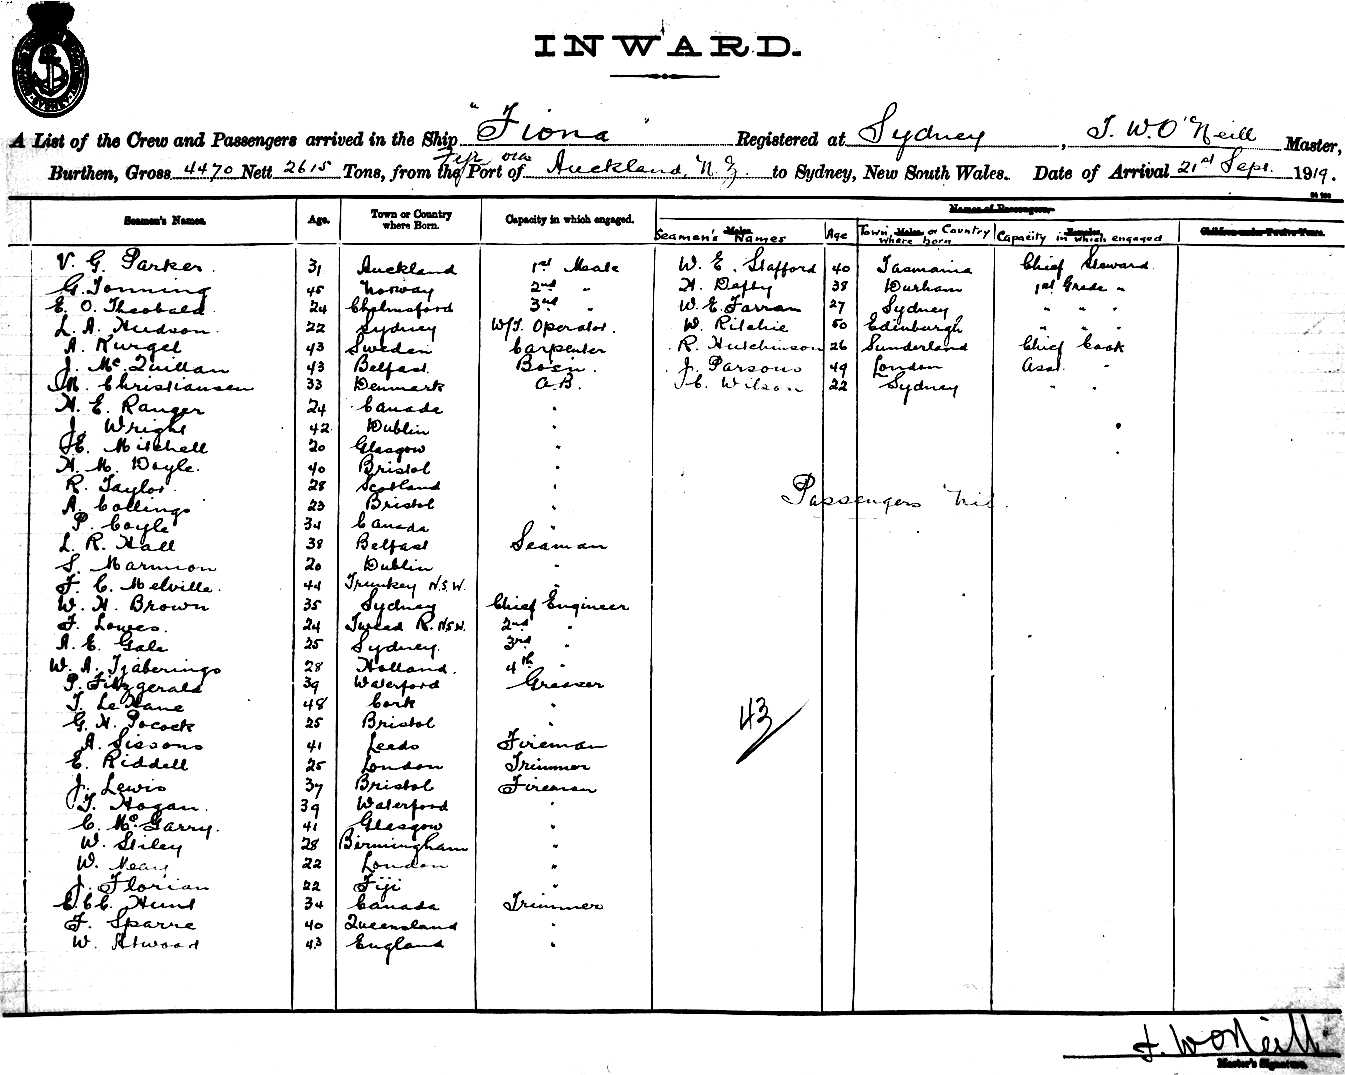 SYDNEY
INWARD.
A List of the Crew and Passengers arrived in the Ship "Fiona" Registered at Sydney, T. W. O'Neill Master,
Burthen, Gross 4470 Nett 2615 Tons, from the Port of Auckland, N.Z. to Sydney, New South Wales. Date of Arrival 21st Sept. 1919.
Fiji via
Names of Passengers.
Seamen's Names. Age. Town or Country where Born. Capacity in which engaged. Seamen's Names Age Town or Country where born Capacity in which engaged Children under Twelve Years.
Males. Males. Females.
V. G. Parker. 31 Auckland 1st Mate W. E. Stafford 40 Tasmania Chief Steward.
G. Tonning 45 Norway 2nd " H. Depty 38 Durham 1st Grade "
E. O. Theobald 24 Chelmsford 3rd " W. E. Farran 27 Sydney " " "
L. A. Hudson. 22 Sydney W/T. Operator. W. Ritchie 50 Edinburgh " " "
A. Kurgel 43 Sweden Carpenter R. Hutchinson 26 Sunderland Chief Cook
J. McQuillan 43 Belfast. Bosn. J. Parsons 49 London Asst. "
M. Christiansen 33 Denmark A.B. C. Wilson 22 Sydney " "
H. E. Ranger 24 Canada "
J. Wright 42 Dublin "
E. Mitchell 20 Glasgow "
H. M. Doyle. 40 Bristol "
R. Taylor. 28 Scotland "
A. Collings 23 Bristol "
Passengers Nil.
P. Coyle 34 Canada "
L. R. Hall 38 Belfast Seaman
S. Marmion 20 Dublin "
F. C. Melville. 44 Trunkey N.S.W. "
W. H. Brown 35 Sydney Chief Engineer
F. Lowes. 24 Tweed R. N.S.W. 2nd "
A. E. Gale 25 Sydney. 3rd "
W. A. Tjaberings 28 Holland. 4th "
P. Fitzgerald 39 Waterford Greaser
T. LeHane 48 Cork "
G. H. Pocock 25 Bristol "
43
A. Sissons 41 Leeds Fireman
E. Riddell 25 London Trimmer
J. Lewis 37 Bristol Fireman
T. Hogan. 39 Waterford "
C. McGarry. 41 Glasgow "
W. Stiley 28 Birmingham "
W. Neary 22 London "
J. Florian 22 Fiji "
C. C. Hunt 34 Canada Trimmer
F. Sparre 40 Queensland "
W. Atwood 43 England "
T. W. O'Neill
Master's Signature.